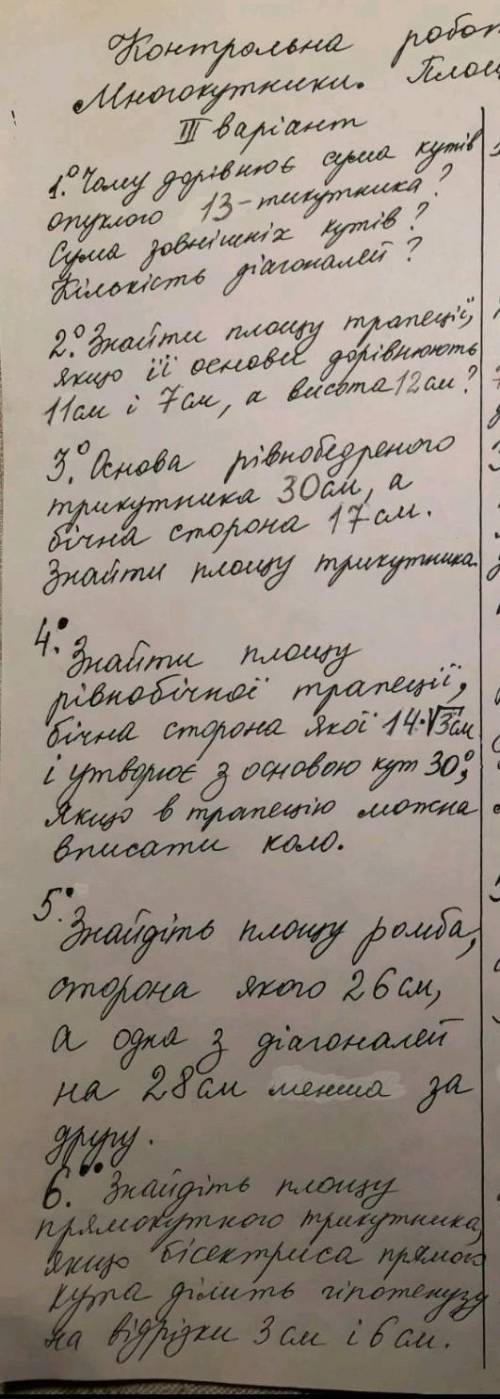 Контрольна робот
Многокутники. Площ
III варіант
1.° Чому дорівнює сума кутів
опуклого 13-тикутника?
Сума зовнішніх кутів?
Кількість діагоналей?
2.° Знайти площу трапеції,
якщо її основи дорівнюють
11см і 7см, а висота 12см?
3.° Основа рівнобедреного
трикутника 30см, а
бічна сторона 17см.
Знайти площу трикутника.
4.° Знайти площу
рівнобічної трапеції,
бічна сторона якої 14·√3см
і утворює з основою кут 30°,
якщо в трапецію можна
вписати коло.
5.° Знайдіть площу ромба,
сторона якого 26см,
а одна з діагоналей
на 28см менша за
другу.
6.°° Знайдіть площу
прямокутного трикутника,
якщо бісектриса прямого
кута ділить гіпотенузу
на відрізки 3см і 6см.